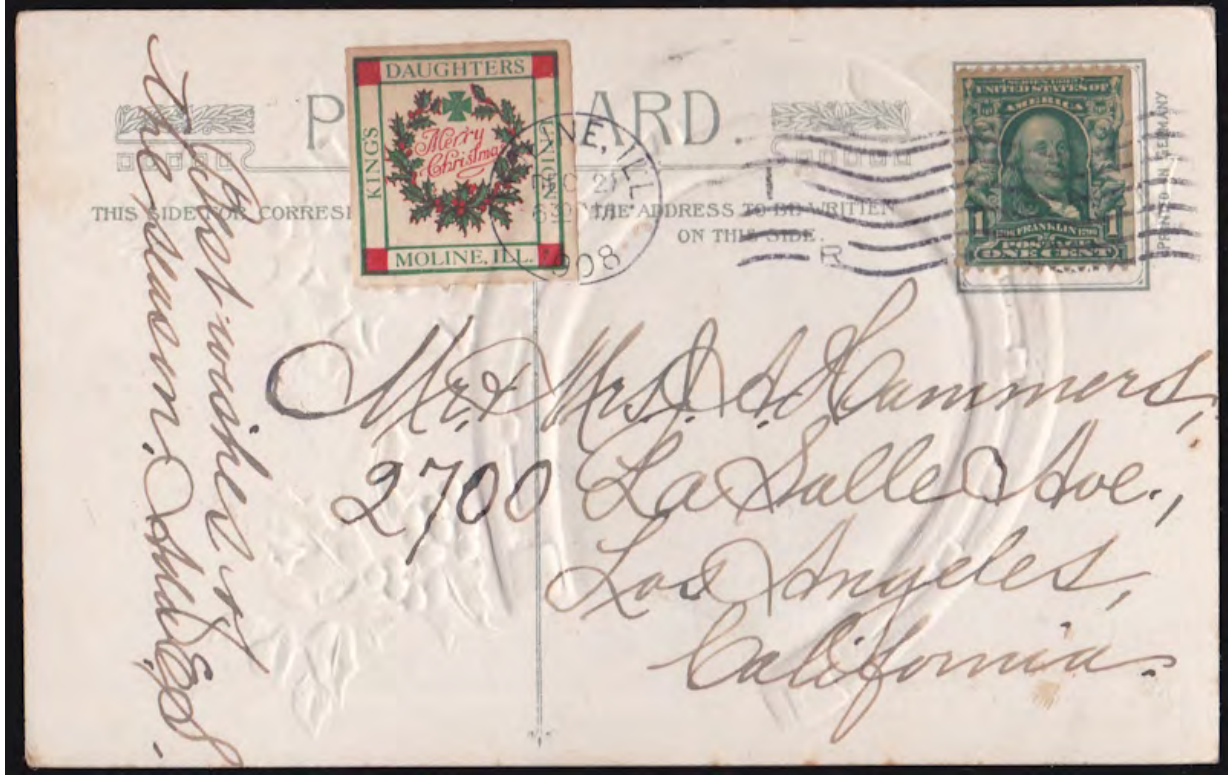 POST CARD
THIS SIDE FOR CORRES
THE ADDRESS TO BE WRITTEN
ON THIS SIDE.
DAUGHTERS
KINGS
UNION
Merry
Christmas
MOLINE, ILL.
NE, ILL.
1908
SERIES 1902
UNITED STATES OF
AMERICA
1 FRANKLIN 1
POSTAGE
ONE CENT
PRINTED IN GERMANY
Best wishes of
the season.
Mr. & Mrs. J. A. Hammers,
2700 La Salle Ave.,
Los Angeles,
California.